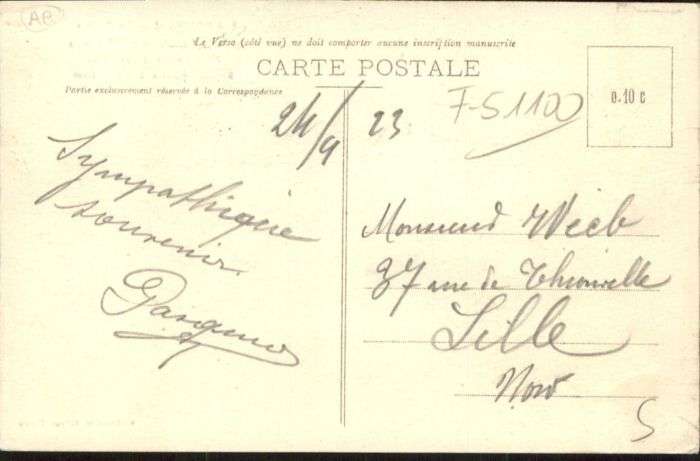 AB
Le Verso (côté vue) ne doit comporter aucune inscription manuscrite
CARTE POSTALE
Partie exclusivement réservée à la Correspondance
24/9 23
F-51100
0.10 c
Sympathique
souvenir
Monsieur Weeb
37 rue de Thionville
Lille
Nord
5